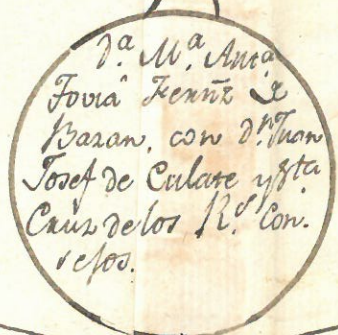 D.ª M.ª Ant.ª
Fernz de
Bazan, con d.n Juan
Josef de Culate y Sta
Cruz de los R.s Con-
sejos.